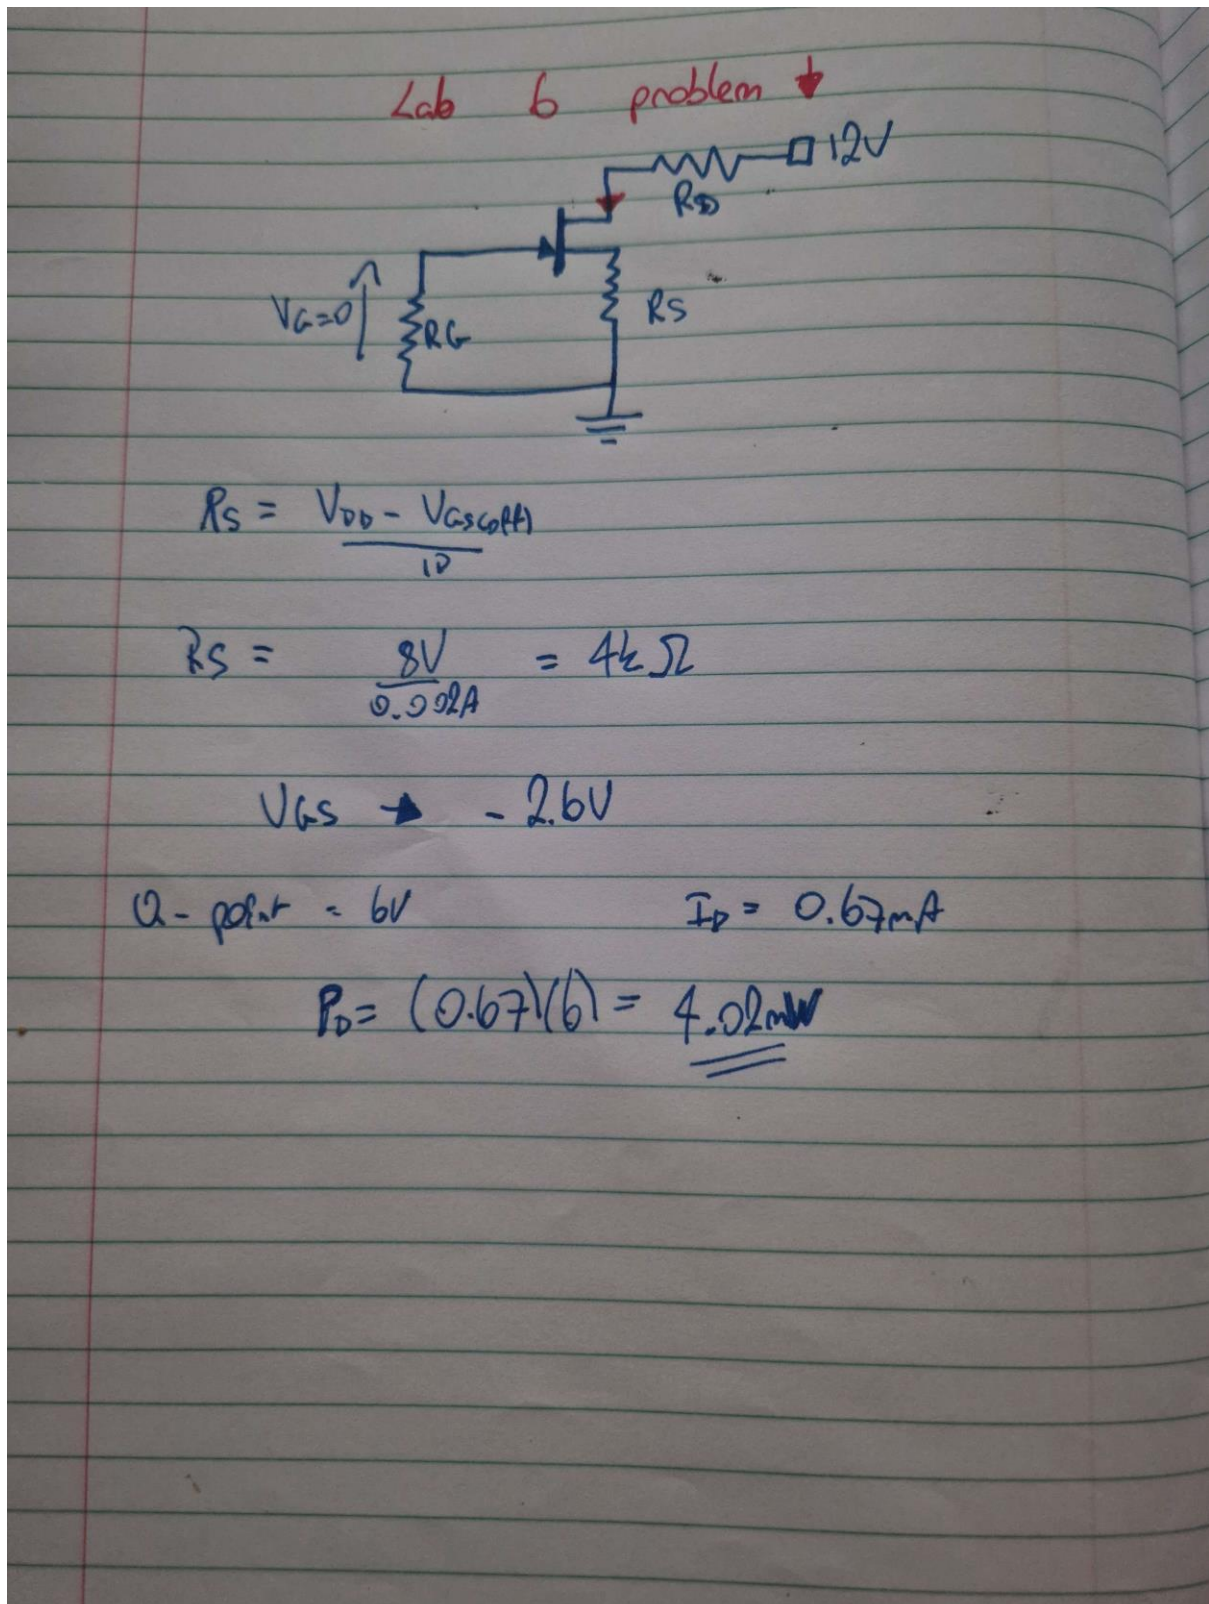 Lab 6 problem ↓
12V
RD
VG=0
RG
RS
RS = VDD - VGS(off)
ID
RS = 8V = 4k Ω
0.002A
VGS → - 2.6V
Q-point = 6V ID = 0.67mA
PD = (0.67)(6) = 4.02mW